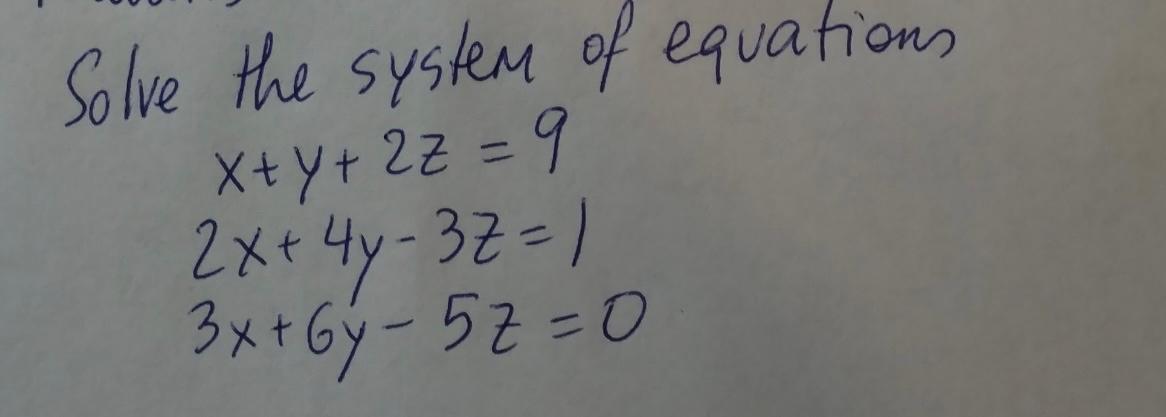 Solve the system of equations
x+y+2z=9
2x+4y-3z=1
3x+6y-5z=0